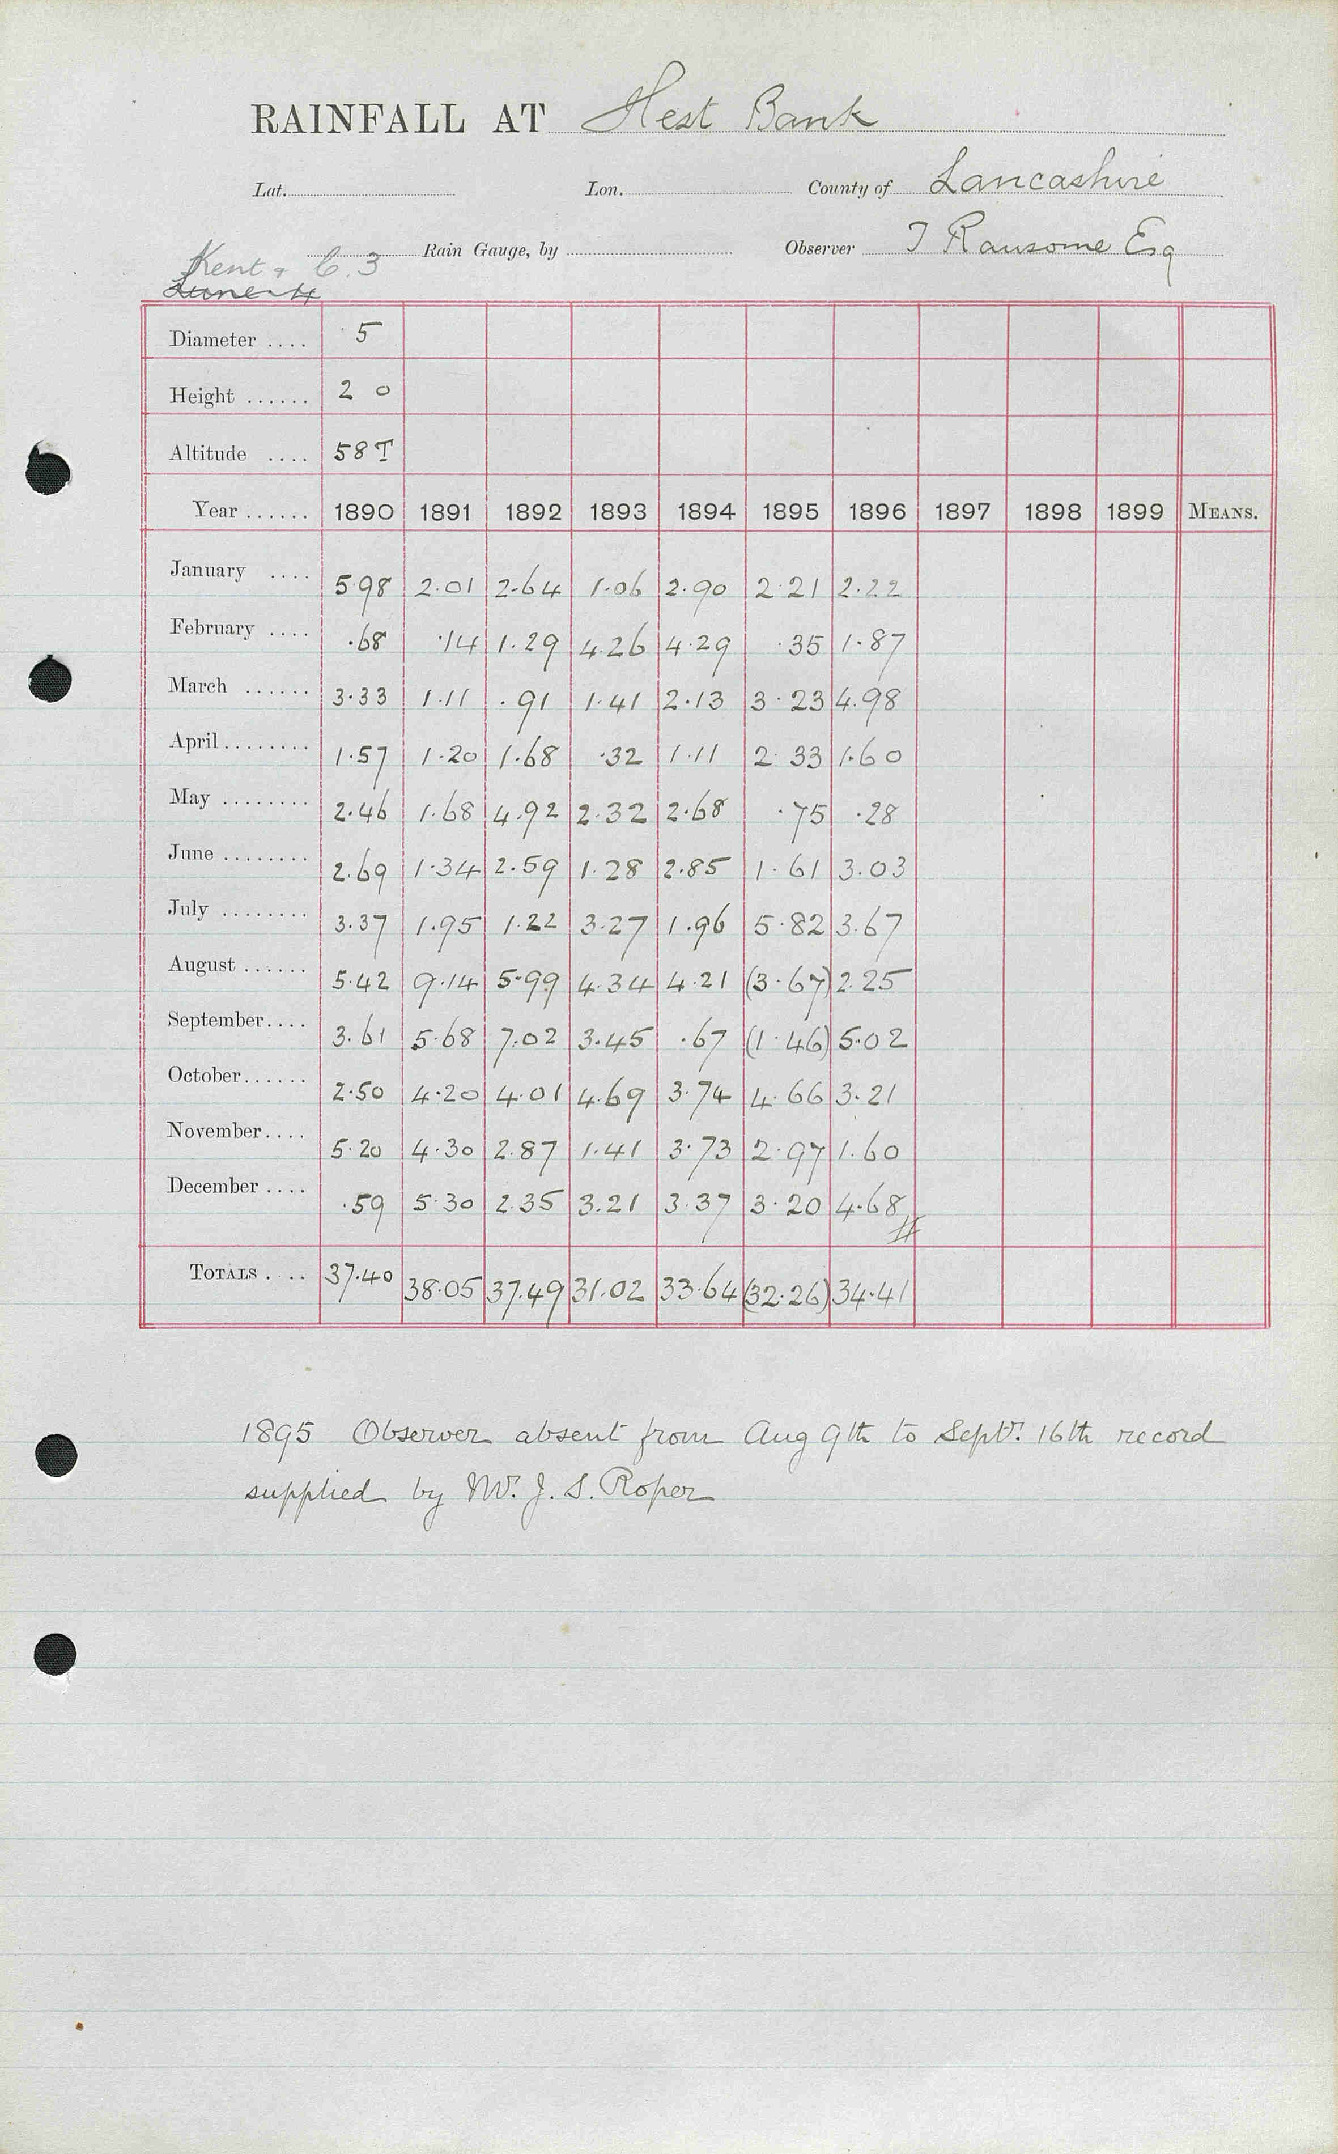 RAINFALL AT Hest Bank
Lat. Lon. County of Lancashire
Kent & C. 3 Rain Gauge, by Observer T Ransome Esq
Lune 4
Diameter .... 5
Height ...... 2 0
Altitude .... 58 T
Year ...... 1890 1891 1892 1893 1894 1895 1896 1897 1898 1899 MEANS.
January .... 5.98 2.01 2.64 1.06 2.90 2.21 2.22
February .... .68 .14 1.29 4.26 4.29 .35 1.87
March ...... 3.33 1.11 .91 1.41 2.13 3.23 4.98
April ........ 1.57 1.20 1.68 .32 1.11 2.33 1.60
May ........ 2.46 1.68 4.92 2.32 2.68 .75 .28
June ........ 2.69 1.34 2.59 1.28 2.85 1.61 3.03
July ........ 3.37 1.95 1.22 3.27 1.96 5.82 3.67
August ...... 5.42 9.14 5.99 4.34 4.21 (3.67) 2.25
September .... 3.61 5.68 7.02 3.45 .67 (1.46) 5.02
October ...... 2.50 4.20 4.01 4.69 3.74 4.66 3.21
November .... 5.20 4.30 2.87 1.41 3.73 2.97 1.60
December .... .59 5.30 2.35 3.21 3.37 3.20 4.68
TOTALS .... 37.40 38.05 37.49 31.02 33.64 (32.26) 34.41
1895 Observer absent from Aug 9th to Septr. 16th record
supplied by Mr. J. S. Roper